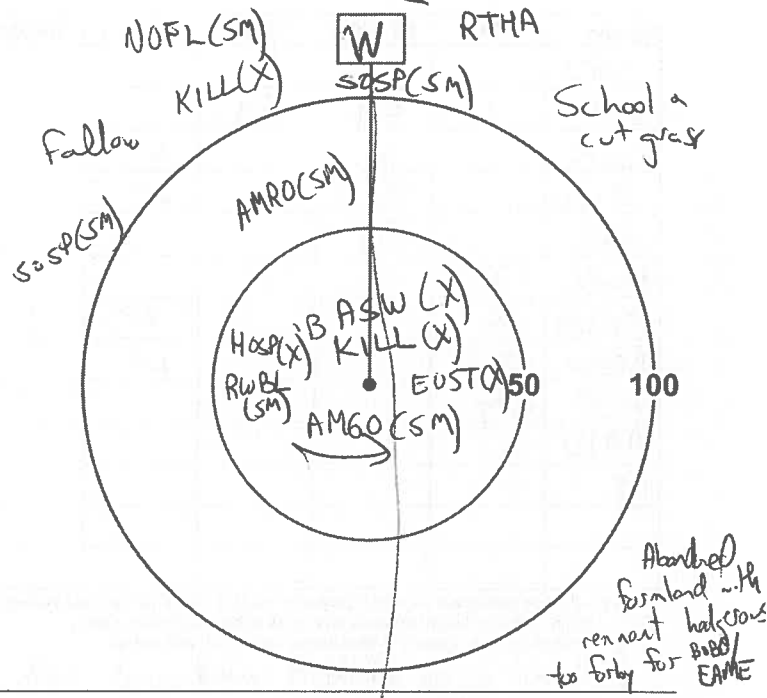 NOFL(SM)
W
RTHA
KILL(X)
SOSP(SM)
School &
cut grass
Fallow
AMRO(SM)
SOSP(SM)
BASW(X)
HOSP(X)
KILL(X)
RWBL
(SM)
EUST(X)
50
100
AMGO(SM)
Abandoned
farmland with
remnant hedgerows
for BOBO/
EAME